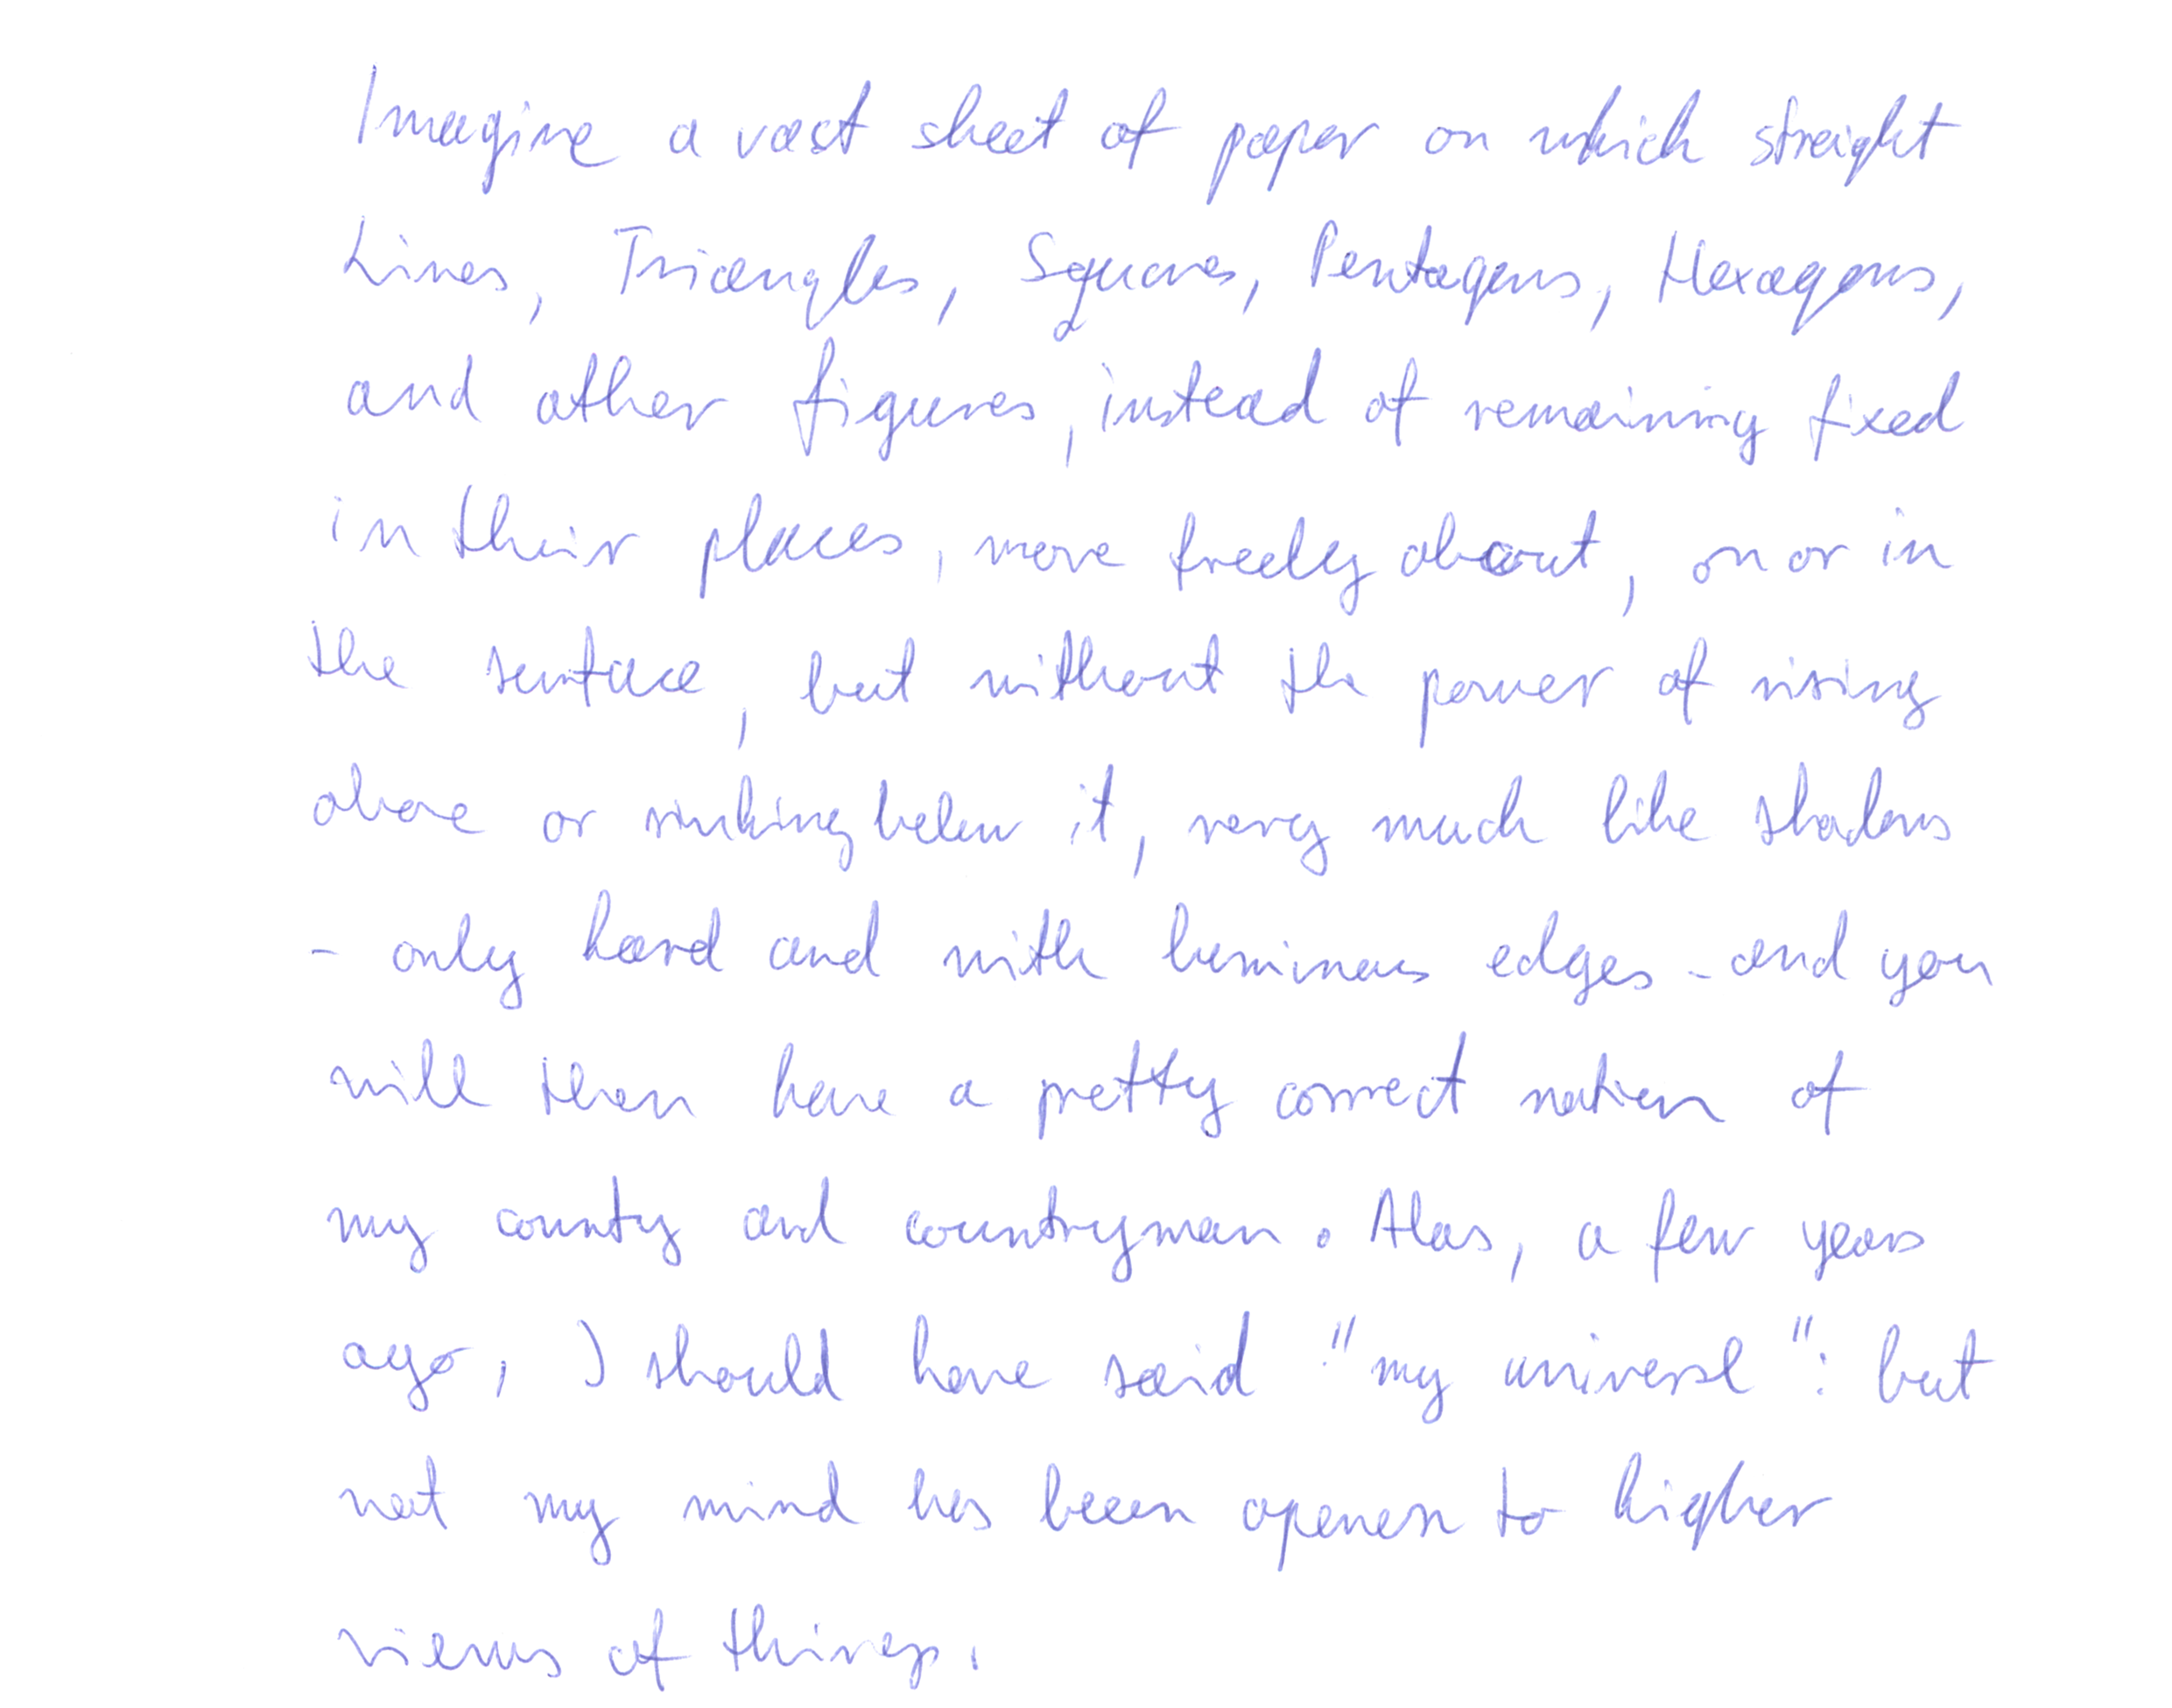 Imagine a vast sheet of paper on which straight
Lines, Triangles, Squares, Pentagons, Hexagons,
and other figures, instead of remaining fixed
in their places, move freely about, on or in
the surface, but without the power of rising
above or sinking below it, very much like shadows
- only hard and with luminous edges - and you
will then have a pretty correct notion of
my county and countryman. Alas, a few years
ago, I should have said "my universe": but
not my mind has been openen to higher
views of things.